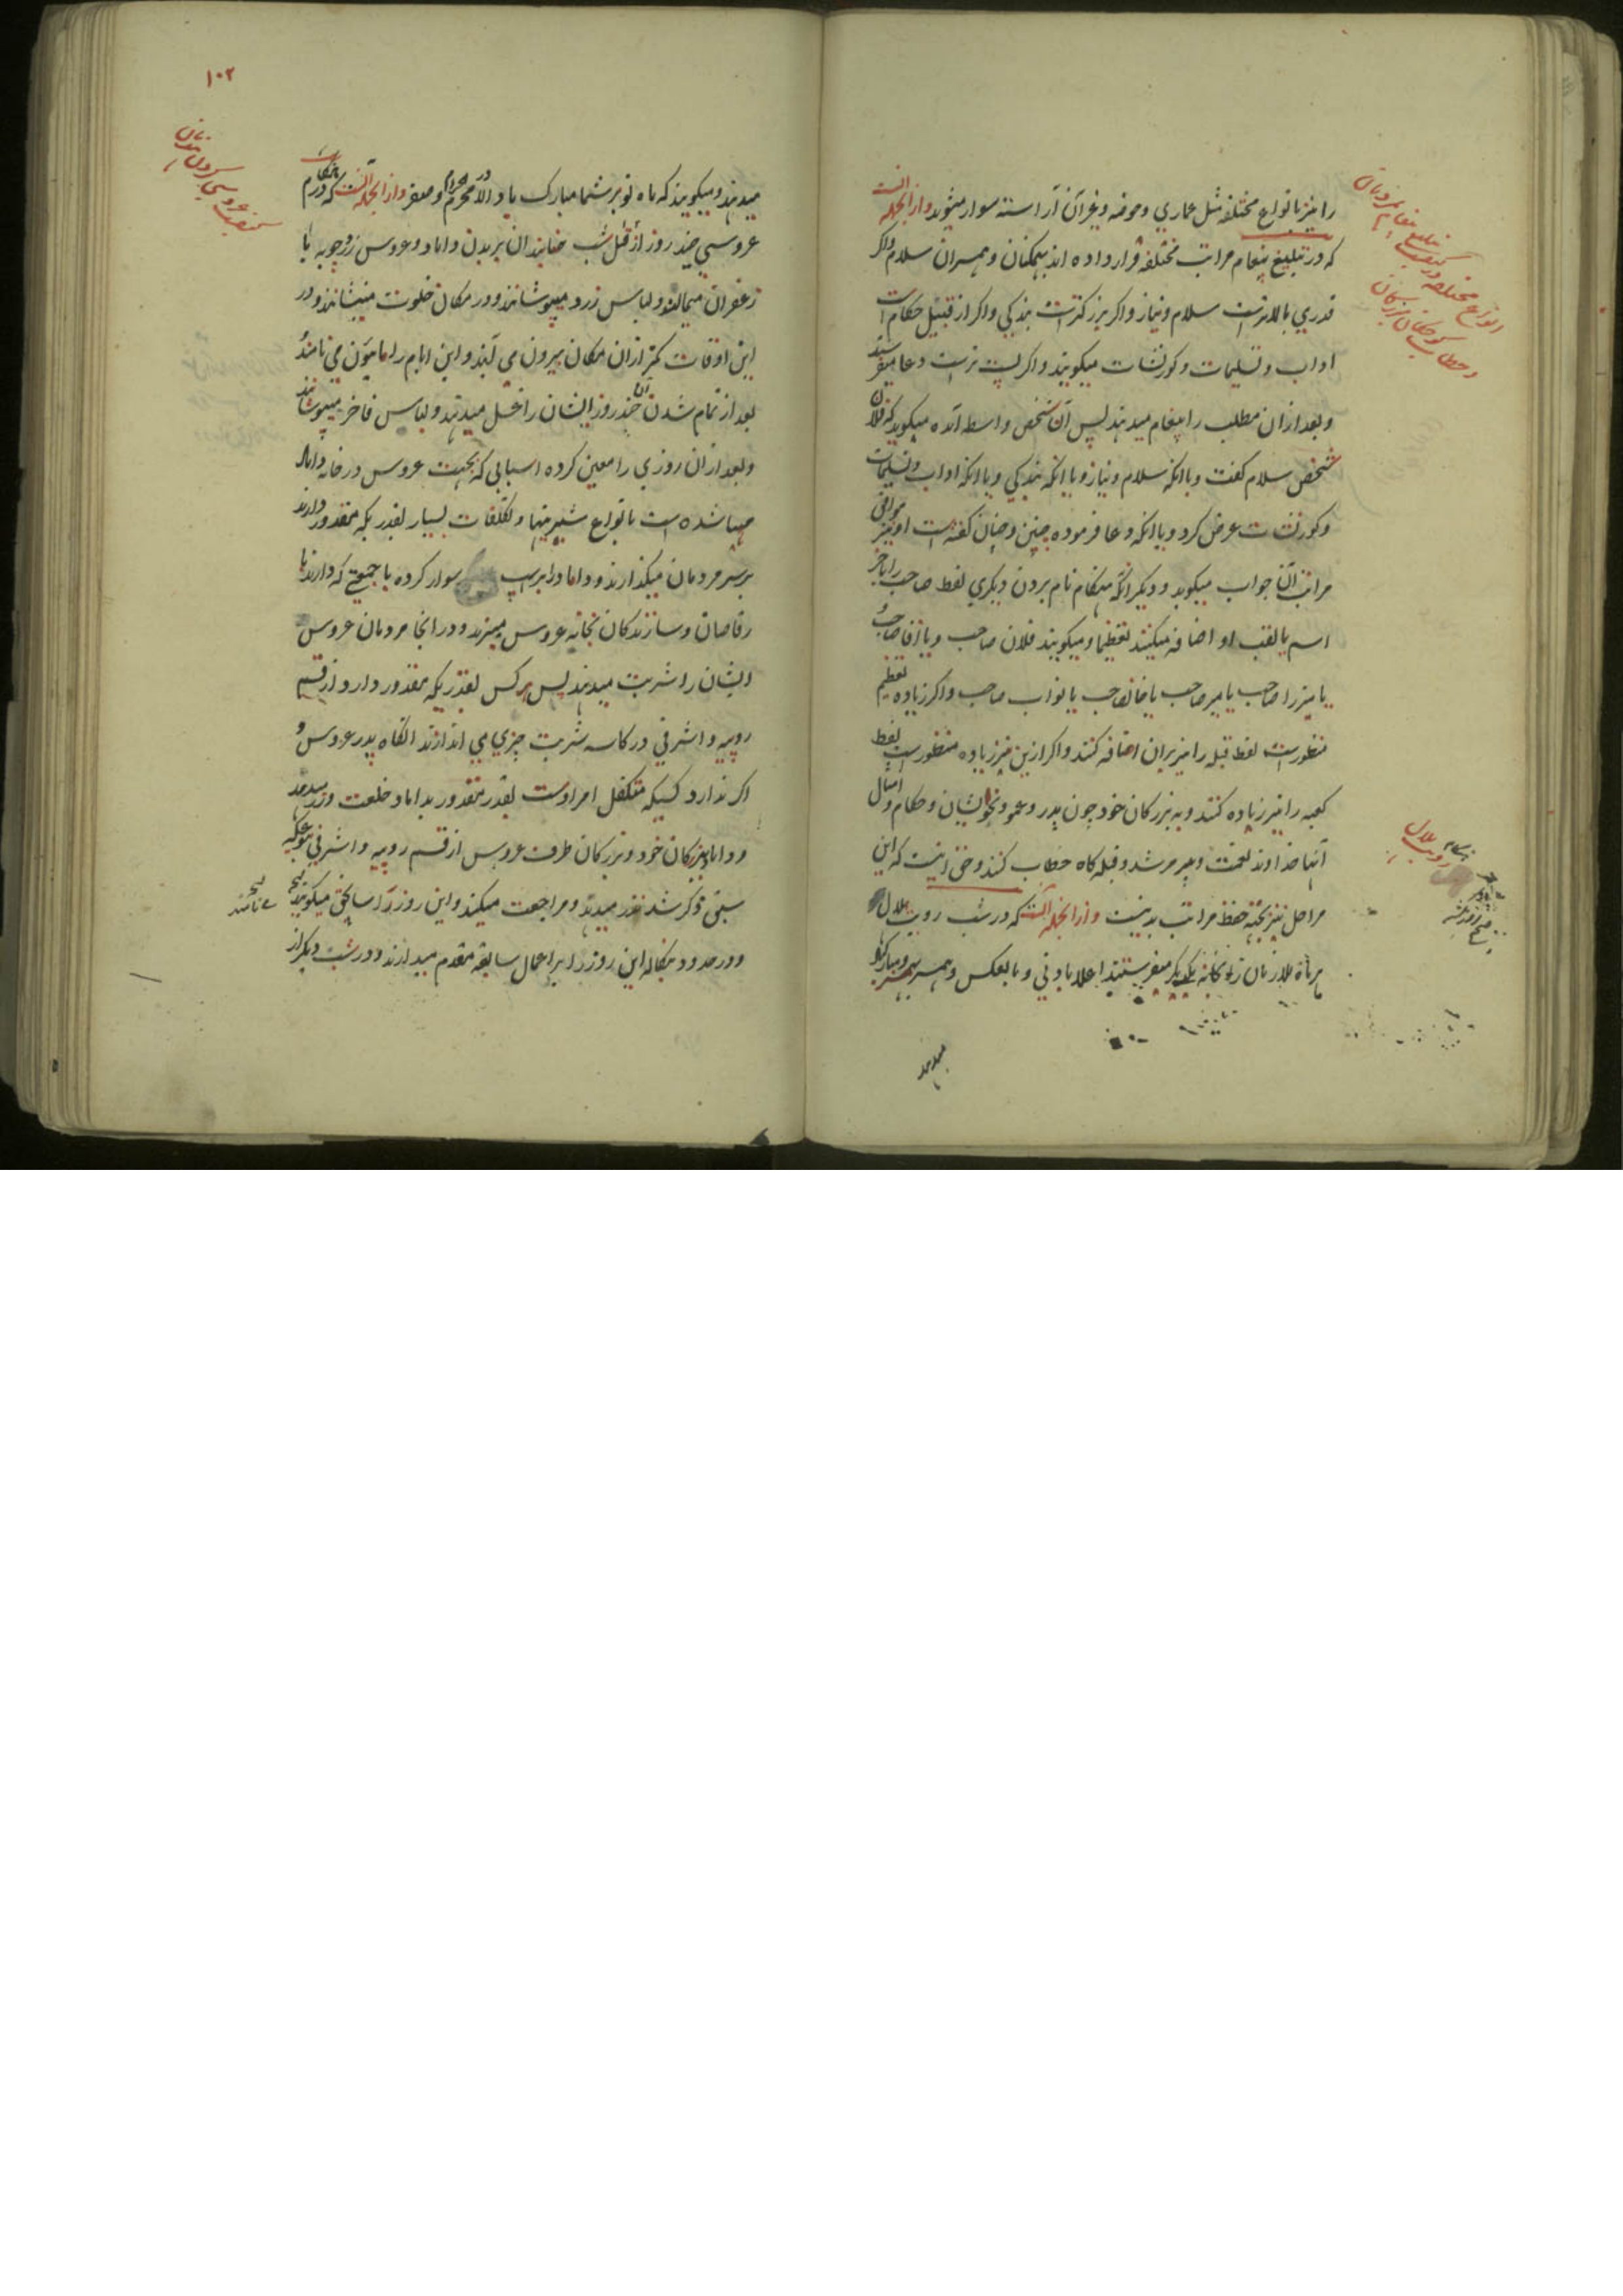 را نیز بانواع مختلفه مثل عماری و حوضه و غیر آن آراسته سوار میشوند و از آنجمله است
که در تبلیغ پیغام مراتب مختلفه قرار داده اند بهمکنان و همسران سلام و اکر
قدری بالاتر است سلام و نیاز و اکر بزرکتر است بندکی و اکر از قبیل حکام است
اداب و تسلیمات و کورنشات میکویند و اکر پست تر است دعا میفرستند
و بعد از ان مطلب را پیغام میدهند پس آن شخص واسطه آمده میکوید که فلان
شخص سلام کفت و یا انکه سلام و نیاز و یا انکه بندکی و یا انکه اداب و تسلیمات
و کورنشات عرض کرد و یا انکه دعا فرموده چنین و چنان کفته است او نیز موافق
مراتب آن جواب میکوید و دیکر انکه هنکام نام بردن دیکری لفظ صاحب را باخر
اسم یا لقب او اضافه میکنند تعظیما و میکویند فلان صاحب و یا آقا صاحب
یا میرزا صاحب یا میر صاحب یا خانصاحب یا نواب صاحب و اکر زیاده تعظیم
منظور است لفظ قبله را نیز بران اضافه کنند و اکر ازین نیز زیاده منظور است لفظ
کعبه را نیز زیاده کنند و به بزرکان خود چون پدر و عمو و خویشان و حکام و امثال
آنها خداوند نعمت و پیر مرشد و قبله کاه خطاب کنند و خفی نیست که این
مراحل نیز بجهة حفظ مراتب بد نیست و از آنجمله است که در شب رویت هلال
هر ماه ملازمان را بخانه یکدیکر میفرستند اعلا بادنی و بالعکس و همسر بهمسر و مبارکباد
میدهند
انواع مختلفه در کیفیت تبلیغ پیغام
و خطاب کوچکان بزرکان
هنکام رویت هلال
۱۰۲
میدهند و میکویند که ماه نو بر شما مبارک باد الا در محرم الحرام و صفر و از آنجمله است که در هنکام
عروسی چند روز از قبل شب حنابندان بر بدن داماد و عروس زردچوبه یا
زعفران میمالند و لباس زرد میپوشانند و در مکان خلوت مینشانند و در
این اوقات کمتر از ان مکان بیرون می آیند و این ایام را مایون می نامند
بعد از تمام شدن آن چند روز ایشان را غسل میدهند و لباس فاخر میپوشانند
و بعد از ان روزی را معین کرده اسبابی که بجهت عروس در خانه داماد
مهیا شده است با نواع شیرینیها و تکلفات بسیار بقدریکه مقدور دارند
بر سر مردمان میکذارند و داماد را بر اسب سوار کرده با جمعیتی که دارند با
رقاصان و سازندکان بخانه عروس میبرند و در انجا مردمان عروس
ایشان را شربت میدهند پس هر کس بقدریکه مقدور دارد از قسم
روپیه و اشرفی در کاسه شربت چیزی می اندازند انکاه پدر عروس و
اکر ندارد کسیکه متکفل امر اوست بقدر مقدور بداماد خلعت و زر میدهد
و داماد ببزرکان خود و بزرکان طرف عروس از قسم روپیه و اشرفی بنوعیکه
سبق ذکر شد نذر میدهد و مراجعت میکنند و این روز را ساچق میکویند
و در حدود بنکاله این روز را بر اعمال سابقه مقدم میدارند و در شب دیکر از
کیفیت عروسی کردن